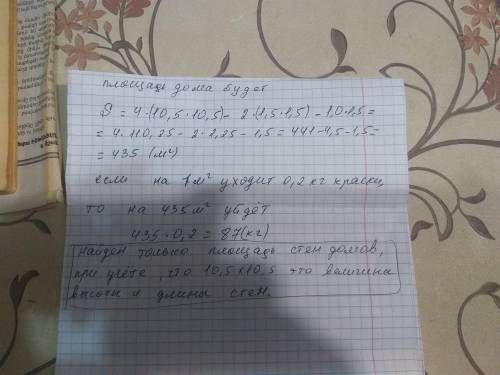 площадь дома будет
S = 4·(10,5·10,5) - 2·(1,5·1,5) - 1,0·1,5=
= 4·110,25 - 2·2,25 - 1,5 = 441-4,5-1,5=
= 435 (м²)
если на 1м² уходит 0,2 кг краски,
то на 435 м² уйдёт
435·0,2 = 87(кг)
Найден только площадь стен домов,
при учёте, что 10,5х10.5 это величина
высоты и длины стен.